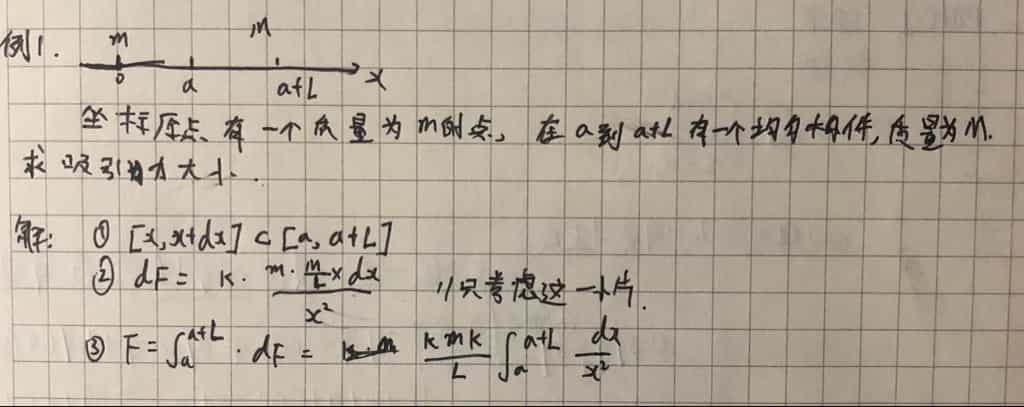 例1.
m M
0 a a+L x
坐标原点、有一个质量为m的点, 在a到a+L有一个均匀构件,质量为M.
求吸引力大小.
解: ① [x,x+dx] ⊂ [a, a+L]
② dF = k · (m · m/L × dx)/x² //只考虑这一小片.
③ F = ∫ₐᵃ⁺ᴸ · dF = (k m k)/L ∫ₐᵃ⁺ᴸ dx/x²